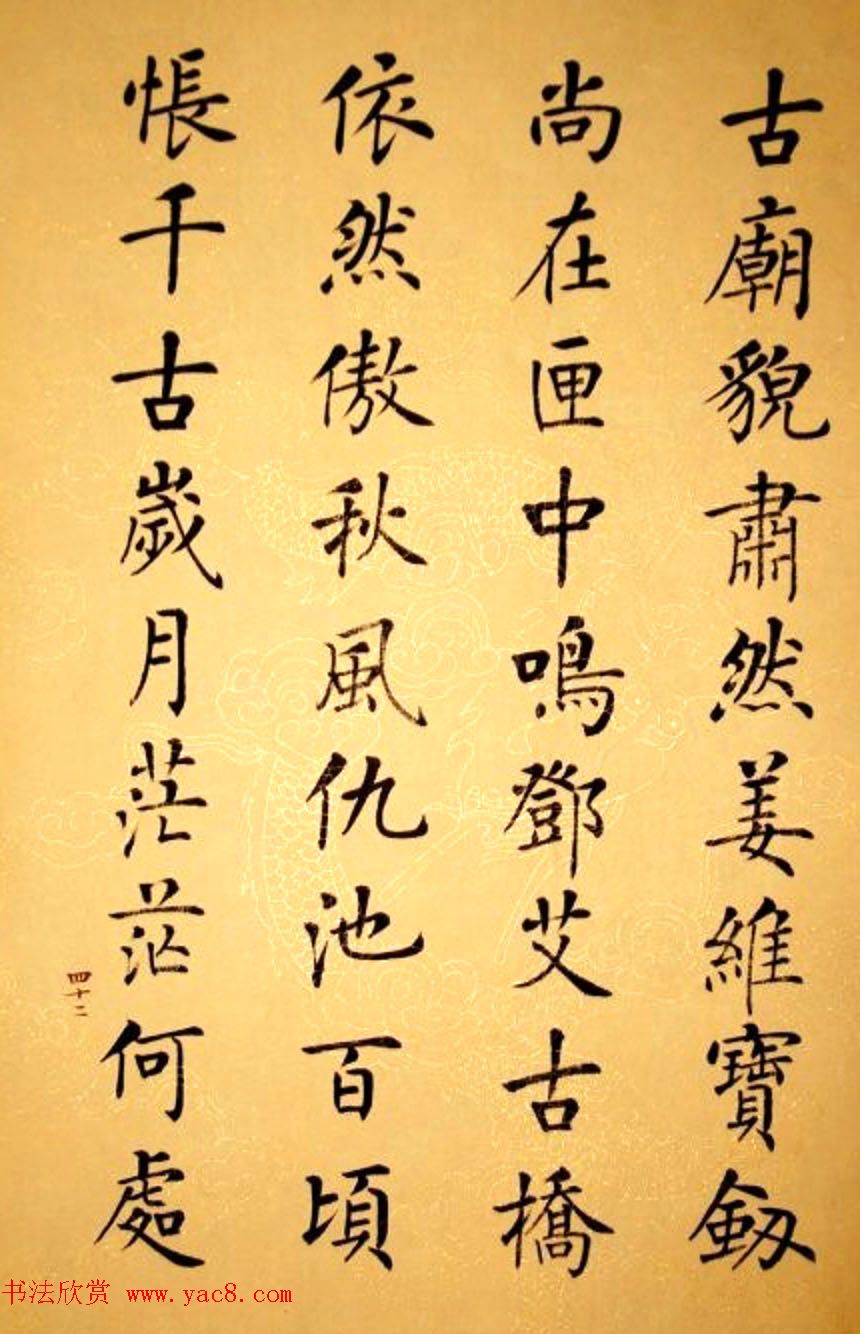 古廟貌肅然姜維寶釼
尚在匣中鳴鄧艾古橋
依然傲秋風仇池百頃
悵千古歲月茫茫何處
四十二
书法欣赏 www.yac8.com